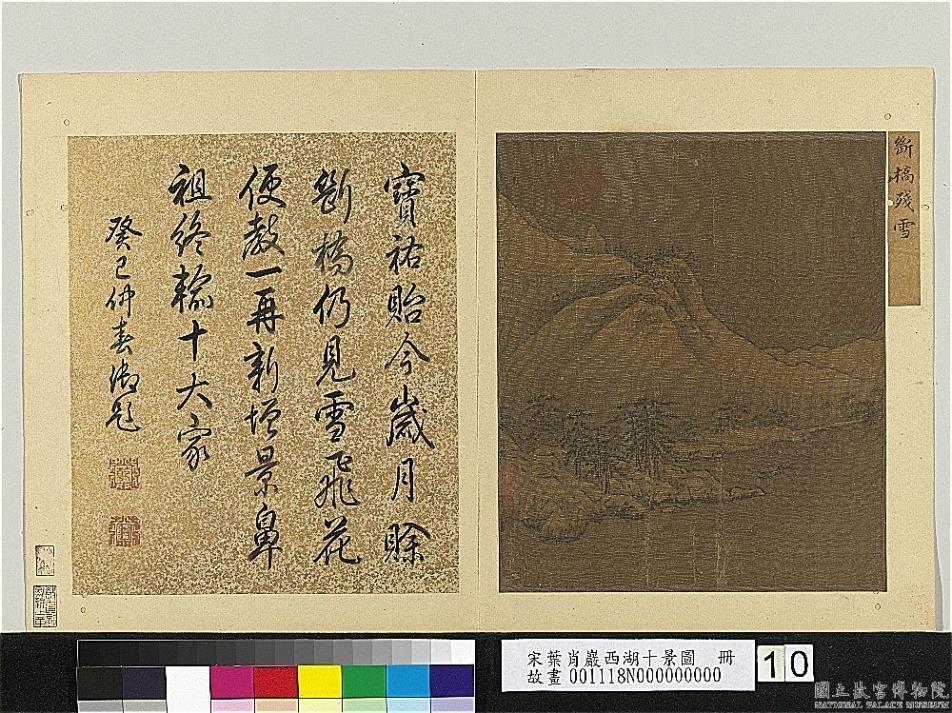 斷橋殘雪
寶祐貽今歲月賒
斷橋仍見雪飛花
便教一再新增景鼻
祖終輸十大家
癸巳仲春御題
宋葉肖巖西湖十景圖 冊
故畫 001118N000000000
10
國立故宮博物院
NATIONAL PALACE MUSEUM